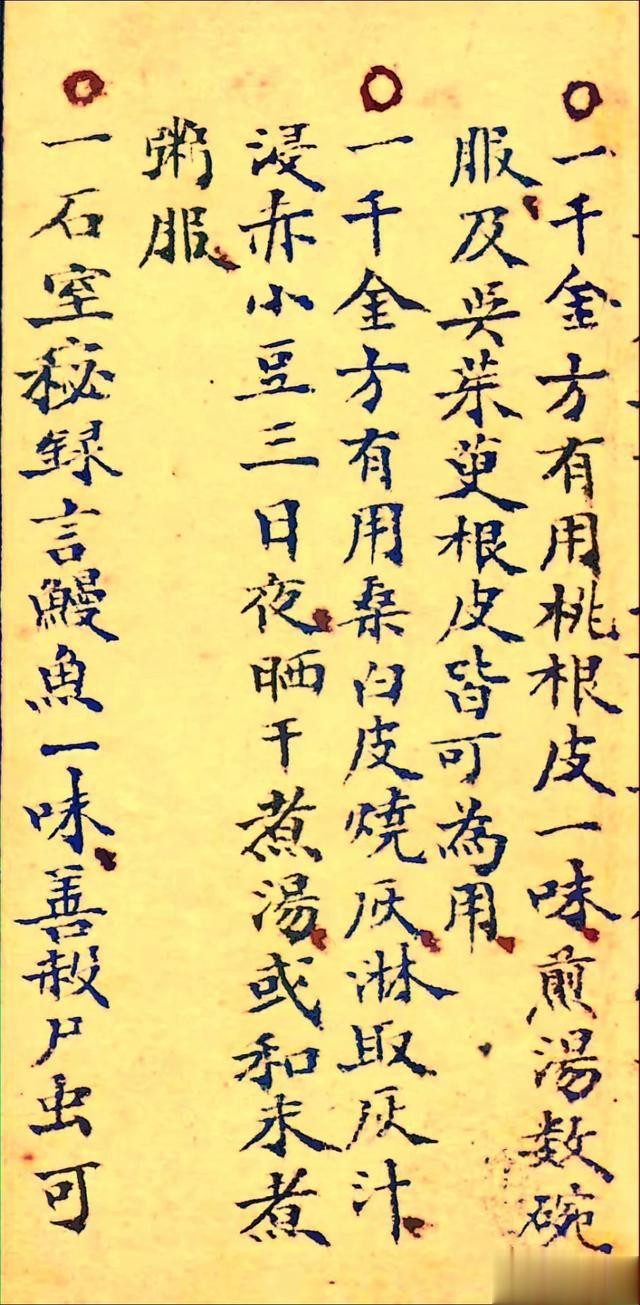 一千金方有用桃根皮一味煎湯数碗
服及吳茱萸根皮皆可為用
一千金方有用桑白皮燒灰淋取灰汁
浸赤小豆三日夜晒干煮湯或和末煮
粥服
一石室秘録言鰻魚一味善殺尸虫可